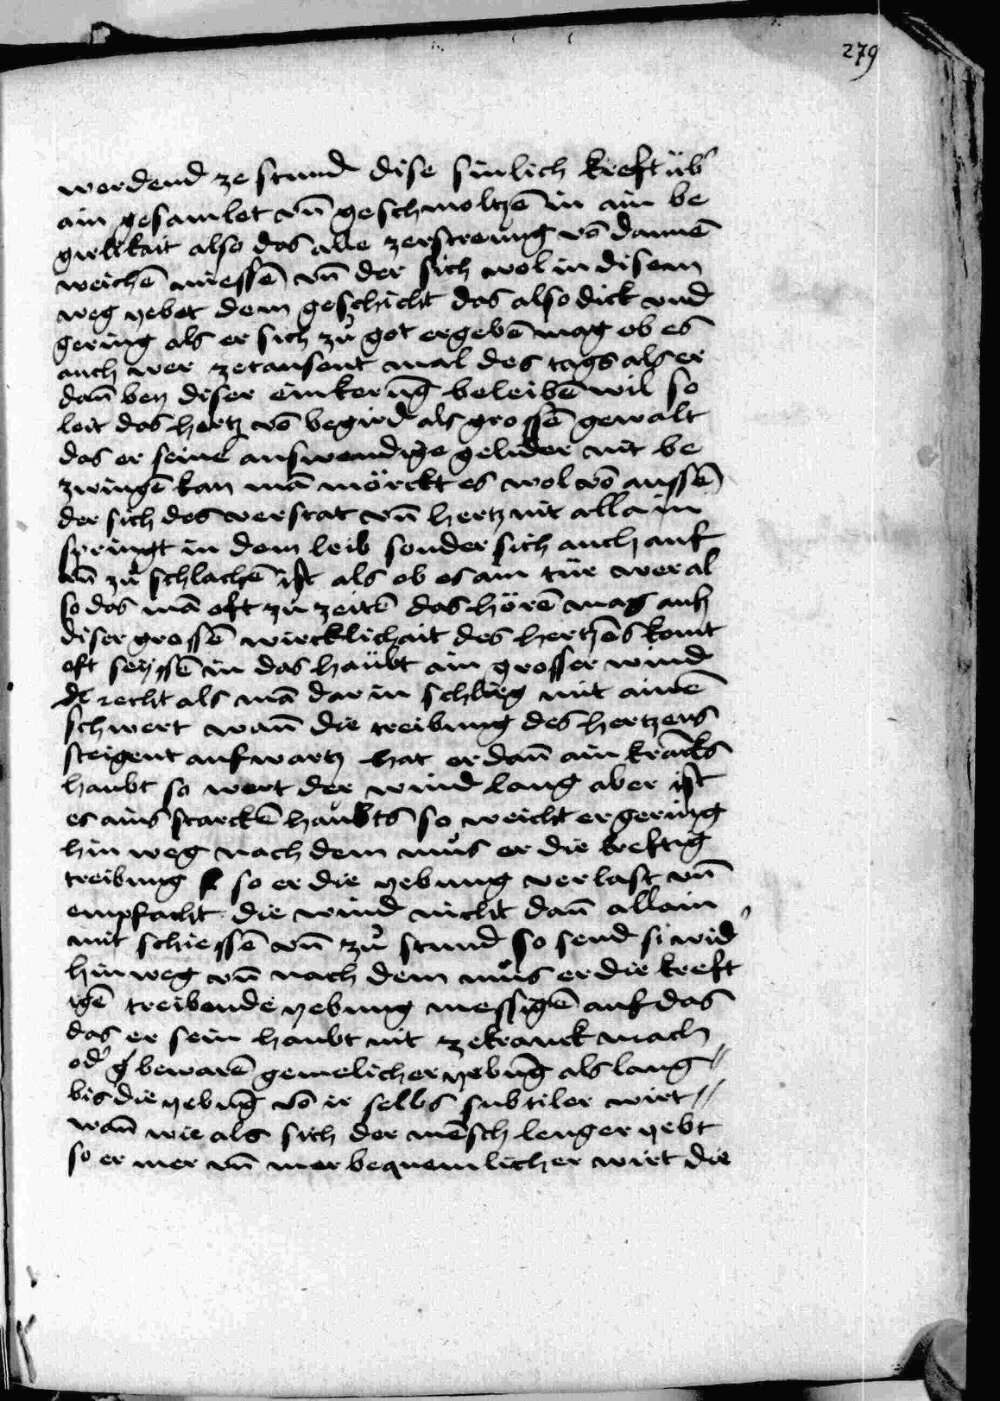 279
werdend ze stund dise sinlich kreft üb
ain gesamlet vn̄ geschmoltzē in ain be
girlikait also das alle zerstreung vō dannē
weichē miessē vn̄ der sich wol in disem
weg yebet dem geschicht das also dick vnd
gering als er sich zů got ergebē mag ob es
auch wer zetausent mal des tags als er
dan̄ bey diser einkerūg beleibē wil so
leit das hertz vō begird als grossē gewalt
das er seine auswendige gelider nit be
zwingē kan mā mörckt es wol vō aussē
der sich des verstat vn̄ hertz nit allain
springt in dem leib sonder sich auch auf
vn̄ zů schlachē ist als ob es ain tür wer al
so das mā oft zů zeitē das hörē mag auß
diser grossē wircklichait des hertzēs komt
oft seissē in das haübt ain grosser wind
recht als mā dar in schlieg mit ainē
schwert wan̄ die treibung des hertzens
steigent aufwartz hat er dan̄ ain krācks
haubt so wert der wind lang aber ist
es ains starckē haubts so weicht er gering
hin weg nach dem můs er die kreftig
treibung so er die yebung verlast vn̄
empfacht die wind nicht dan̄ allain
mit schiessē vn̄ zů stund so send si wid
hin weg vn̄ nach dem můs er die kreft
igē treibende yebung messigē auf das
das er sein haubt nit ze kranck mach
od bewarē gemelicher yebūg als lang
bis die yebūg vō ir selbs subtiler wirt
wan̄ wie als sich der mēsch lenger yebt
so er mer vn̄ mer bequemlicher wirt die